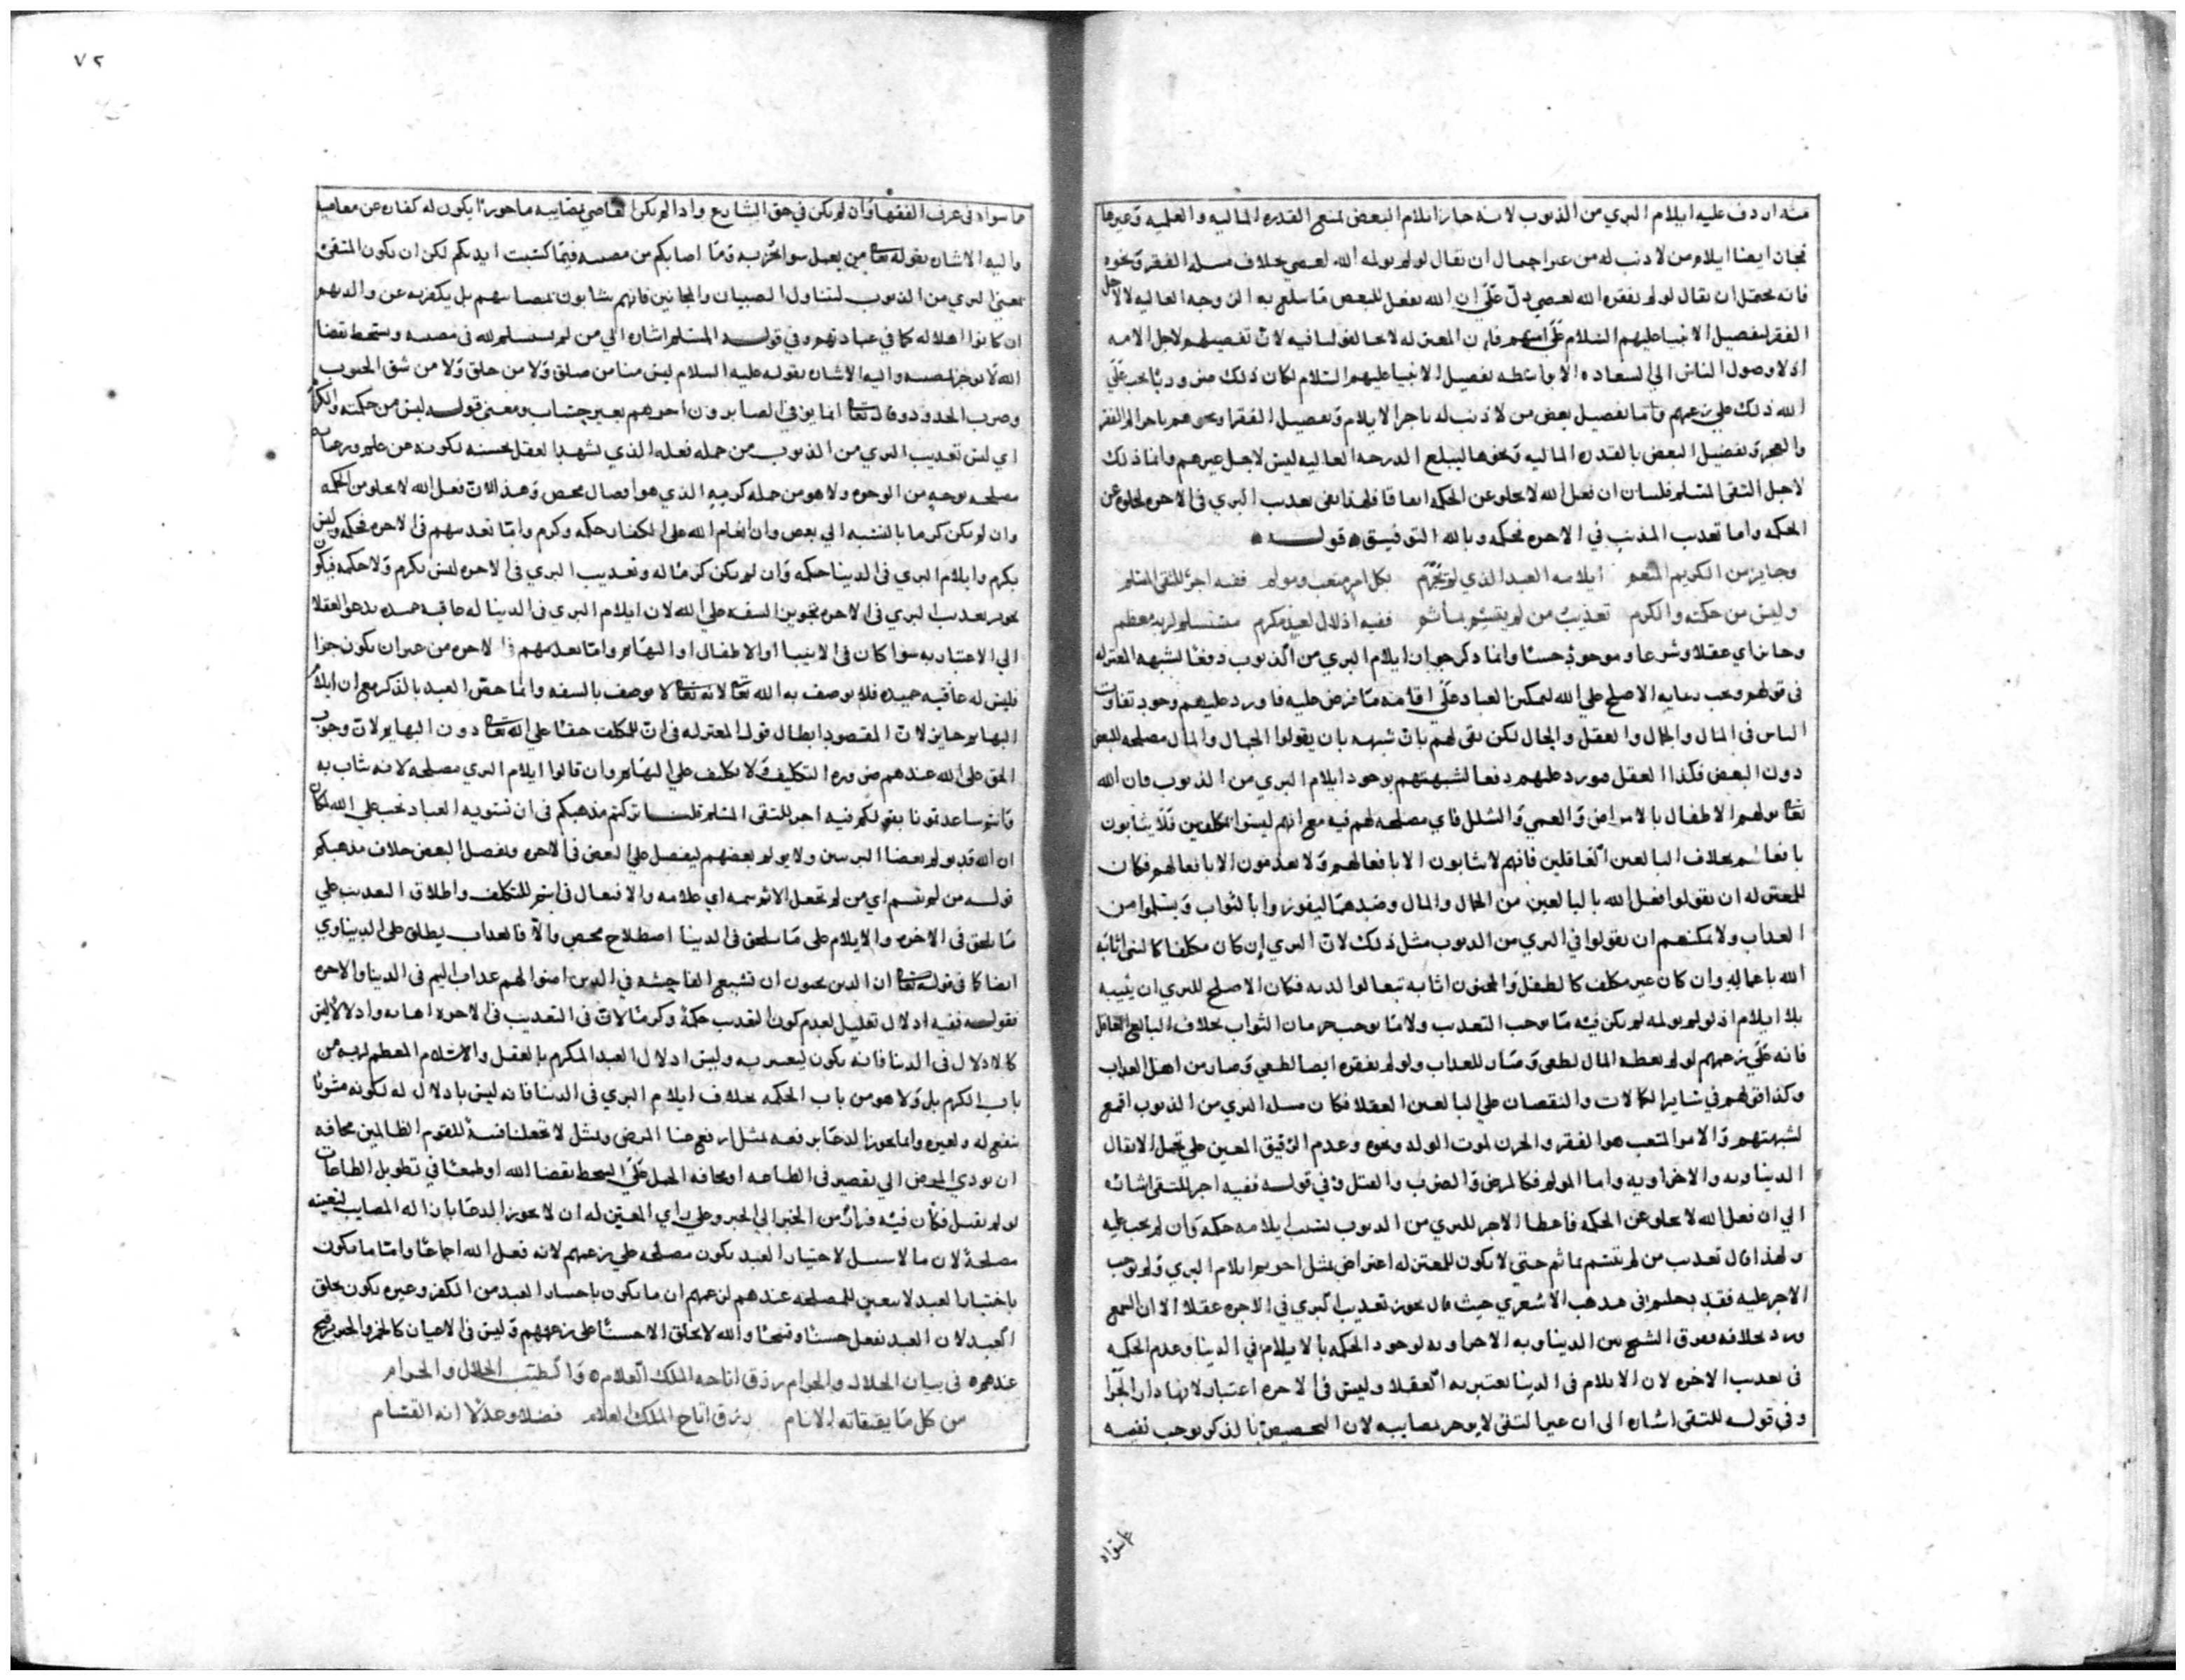 منه اردف عليه ايلام البري من الذنوب لانه جاز ايلام البعض لمنع القدره الماليه والعلميه وغيرها
فجاز ايضا ايلام من لا ذنب له من غير احتمال ان يقال لو لم يولمه الله لعصي بخلاف مسله الفقر ونحوه
فانه يحتمل ان يقال لو لم يفقره الله لعصي دل علي ان الله يفعل للبعض ما سلع به الدرجه العاليه لا لاجل
الفقر لتفصيل الانبيا عليهم السلام علي اممهم فان المعتزله لا يخالفوننا فيه لان تفضيلهم لاجل الامه
اذ لا وصول الناس الي السعاده الا بواسطه تفضيل الانبيا عليهم السلام لكان ذلك ضروريا يجب علي
الله ذلك علي زعمهم واما تفضيل بعض من لا ذنب له باجر الايلام وتفضيل الفقرا ونحوهم باجر الم الفقر
والعجز وتفضيل البعض بالقدره الماليه ونحوها ليبلغ الدرجه العاليه ليس لاجل غيرهم وانما ذلك
لاجل التقي المسلم فلسان ان فعل الله لا يخلو عن الحكمه اتفاقا فلهذا نفي تعذيب البري في الاخره لخلوه عن
الحكمه واما تعذيب المذنب في الاخره فحكمه وبالله التوفيق قوله
وجايز من الكريم المنعم ايلامه العبد الذي لم يجرم بكل امر متعب ومولم ففيه اجر للتقي المسلم
وليس من حكمته والكرم تعذيب من لم يتسم بمأثم ففيه اذلال لعبد مكرم مستسلم لربه معظم
وجايز اي عقلا وشرعا وموجود حسا وانما ذكر جواز ايلام البري من الذنوب دفعا لشبهه المعتزله
في قولهم وتجب رعايه الاصلح علي الله لتمكين العباد علي اقامه ما فرض عليه فاورد عليهم وجود تفاوت
الناس في المال والجمال والعقل والحال لكن بقي لهم باب شبهه بان يقولوا الجمال والمال مصلحه للبعض
دون البعض فكذا العقل فورد عليهم دفعا لشبهتهم بوجود ايلام البري من الذنوب فان الله
تعالي يولم الاطفال بالامراض والعمي والشلل فاي مصلحه لهم فيه مع انهم ليسوا بمكلفين فلا يثابون
بافعالهم بخلاف البالغين العاقلين فانهم لا يثابون الا بافعالهم ولا يعذبون الا بافعالهم فكان
للمعتزله ان يقولوا فعل الله بالبالغين من الجمال والمال وضدهما ليفوزوا بالثواب ويسلموا من
العذاب ولا يمكنهم ان يقولوا في البري من الذنوب مثل ذلك لان البري ان كان مكلفا كالنبي اثابه
الله باعماله وان كان غير مكلف كالطفل والمجنون اثابه تبعا لوالديه فكان الاصلح للبري ان يثيبه
بلا ايلام اذ لو لم يولمه لم يكن فيه ما يوجب التعذيب ولا ما يوجب حرمان الثواب بخلاف البالغ العاقل
فانه علي زعمهم لو لم يعطه المال لطغي وصار للعذاب ولو لم يفقره ايضا لطغي وصار من اهل العذاب
وكذا قولهم في ساير الكمالات والنقصان علي البالغين العقلا فكان مسله البري من الذنوب اقمع
لشبهتهم والامر المتعب هو الفقر والحزن لموت الولد ونحوه وعدم الرفيق المعين علي تحمل الاثقال
الدنياويه والاخراويه واما المولم فكالمرض والضرب والقتل وفي قوله ففيه اجر للتقي اشاره
الي ان فعل الله لا يخلو عن الحكمه فاعطا الاجر للبري من الذنوب بسبب ايلامه حكمه وان لم يجب عليه
ولهذا قال تعذيب من لم يتسم بمأثم حتي لا يكون للمعتزله اعتراض بمثل اجر ايلام البري ولم يوجب
الاجر عليه فقد دخلتم في مذهب الاشعري حيث قال يجوز تعذيب البري في الاخره عقلا الا ان السمع
ورد بخلافه ففرق الشيخ بين الدنياويه والاخراويه لوجود الحكمه بالايلام في الدنيا وعدم الحكمه
في تعذيب الاخره لان الايلام في الدنيا يعتبر به العقلا وليس في الاخره اعتبار لانها دار الجزا
وفي قوله للتقي اشاره الي ان غير التقي لا يوجر بمصايبه لان التخصيص بالذكر يوجب نفيه
ما سواه
٧٢
ما سواه في عرف الفقها وان لم يكن في حق الشارع واذا لم يكن العاصي بمصايبه ماجورا يكون له كفاره عن معاصيه
واليه الاشاره بقوله تعالي من يعمل سوا يجز به وما اصابكم من مصيبه فبما كسبت ايديكم لكن ان يكون المتقي
بمعني البري من الذنوب ليتناول الصبيان والمجانين فانهم يثابون بمصايبهم بل يكفر به عن والديهم
ان كانوا اهلا له كما في عبادتهم وفي قوله المسلم اشاره الي من لم يستسلم لله في مصيبه ويسخط بقضا
الله لا يوجر لمصيبه واليه الاشاره بقوله عليه السلام ليس منا من صلق ولا من حلق ولا من شق الجيوب
وضرب الخدود وقال تعالي انما يوفي الصابرون اجرهم بغير حساب ومعني قوله ليس من حكمته والكرم
اي ليس تعذيب البري من الذنوب من جمله فعله الذي يشهد العقل بحسنه لكونه عن علم ورعايه
مصلحه بوجه من الوجوه ولا هو من جمله كرمه الذي هو افضال محض وهذا لان فعل الله لا يخلو من الحكمه
وان لم يكن كرما بالنسبه الي بعض وان انعام الله علي الكفار حكمه وكرم واما تعذيبهم في الاخره فحكمه وليس
بكرم وايلام البري في الدنيا حكمه وان لم يكن كرما له وتعذيب البري في الاخره ليس بكرم ولا حكمه فيكون
تجويز تعذيب البري في الاخره تجويز السفه علي الله لان ايلام البري في الدنيا له عاقبه حميده يدعو العقلا
الي الاعتبار به سوا كان في الانبيا او الاطفال او البهايم واما تعذيبهم في الاخره من غير ان يكون جزا
فليس له عاقبه حميده فلا يوصف به الله تعالي لانه تعالي لا يوصف بالسفه وانما خص العبد بالذكر مع ان ايلام
البهايم جايز لان المقصود ابطال قول المعتزله في ان للمكلف حقا علي الله تعالي دون البهايم لان وجوب
الحق علي الله عندهم ضروره التكليف ولا تكليف علي البهايم وان قالوا ايلام البري مصلحه لانه يثاب به
وانتم ساعدتمونا بقولكم فيه اجر للتقي المسلم قلنا تركتم مذهبكم في ان تسويه العباد تجب علي الله لكان
ان الله قد يولم بعضا البريين ولا يولم بعضهم ليفضل علي البعض في الاخره وتفضيل البعض خلاف مذهبكم
قوله من لم يتسم اي من لم يجعل الاثم سمه اي علامه والافتعال في يتسم للتكلف واطلاق التعذيب علي
ما يلحق في الاخره والايلام علي ما يلحق في الدنيا اصطلاح محض والا فالعذاب يطلق علي الدنياوي
ايضا كما في قوله تعالي ان الذين يحبون ان تشيع الفاحشه في الذين امنوا لهم عذاب اليم في الدنيا والاخره
فقوله ففيه اذلال تعليل لعدم كون التعذيب حكمة وكرما لان في التعذيب في الاخره اهانه واذلالا ليس
كالاذلال في الدنيا فانه يكون ليعتبر به وليس اذلال العبد المكرم بالعقل والاسلام المعظم لربه من
باب الكرم بل ولا هو من باب الحكمه بخلاف ايلام البري في الدنيا فانه ليس باذلال له لكونه مشوبا
بنفع له ولغيره وانما يجوز الدعا برفعه بمثل ارفع عنا المرض ومثل لا تجعلنا فتنة للقوم الظالمين مخافه
ان يودي المرض الي تقصير في الطاعه او مخافه الحمل علي السخط بقضا الله او طمعا في تطويل الطاعات
لو لم يقتل فكان فيه فرار من الخير الي الخير وعلي راي المعتزله ان لا يجوز الدعا بازاله المصايب لتعينه
مصلحة لان ما لا سبيل لاختيار العبد يكون مصلحه علي زعمهم لانه فعل الله اجماعا واما ما يكون
باختيار العبد لا يتعين للمصلحه عندهم لزعمهم ان ما يكون باختيار العبد من الكفر وغيره يكون بخلق
العبد لان العبد يفعل حسنا وقبيحا والله لا يخلق الا حسنا علي زعمهم وليس في الاعيان كالخمر والخنزير قبيح
عندهم ه في بيان الحلال والحرام رزق اتاحه الملك العلام ه والطيب الحلال والحرام
من كل ما يقتاته الانام رزق اتاح الملك العلام فضلا وعدلا انه القسام